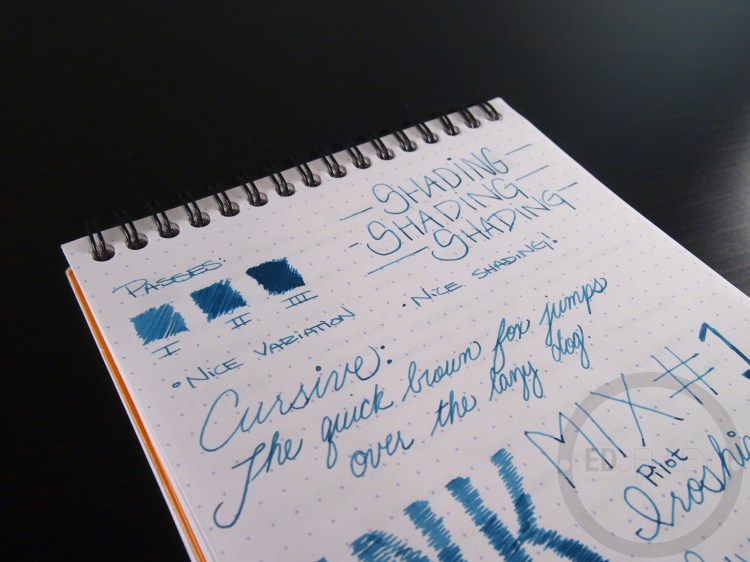 SHADING
SHADING
SHADING
PASSES:
I II III
• NICE VARIATION
• NICE SHADING!
Cursive:
The quick brown fox jumps
over the lazy dog.
MIX #1
Pilot
INK